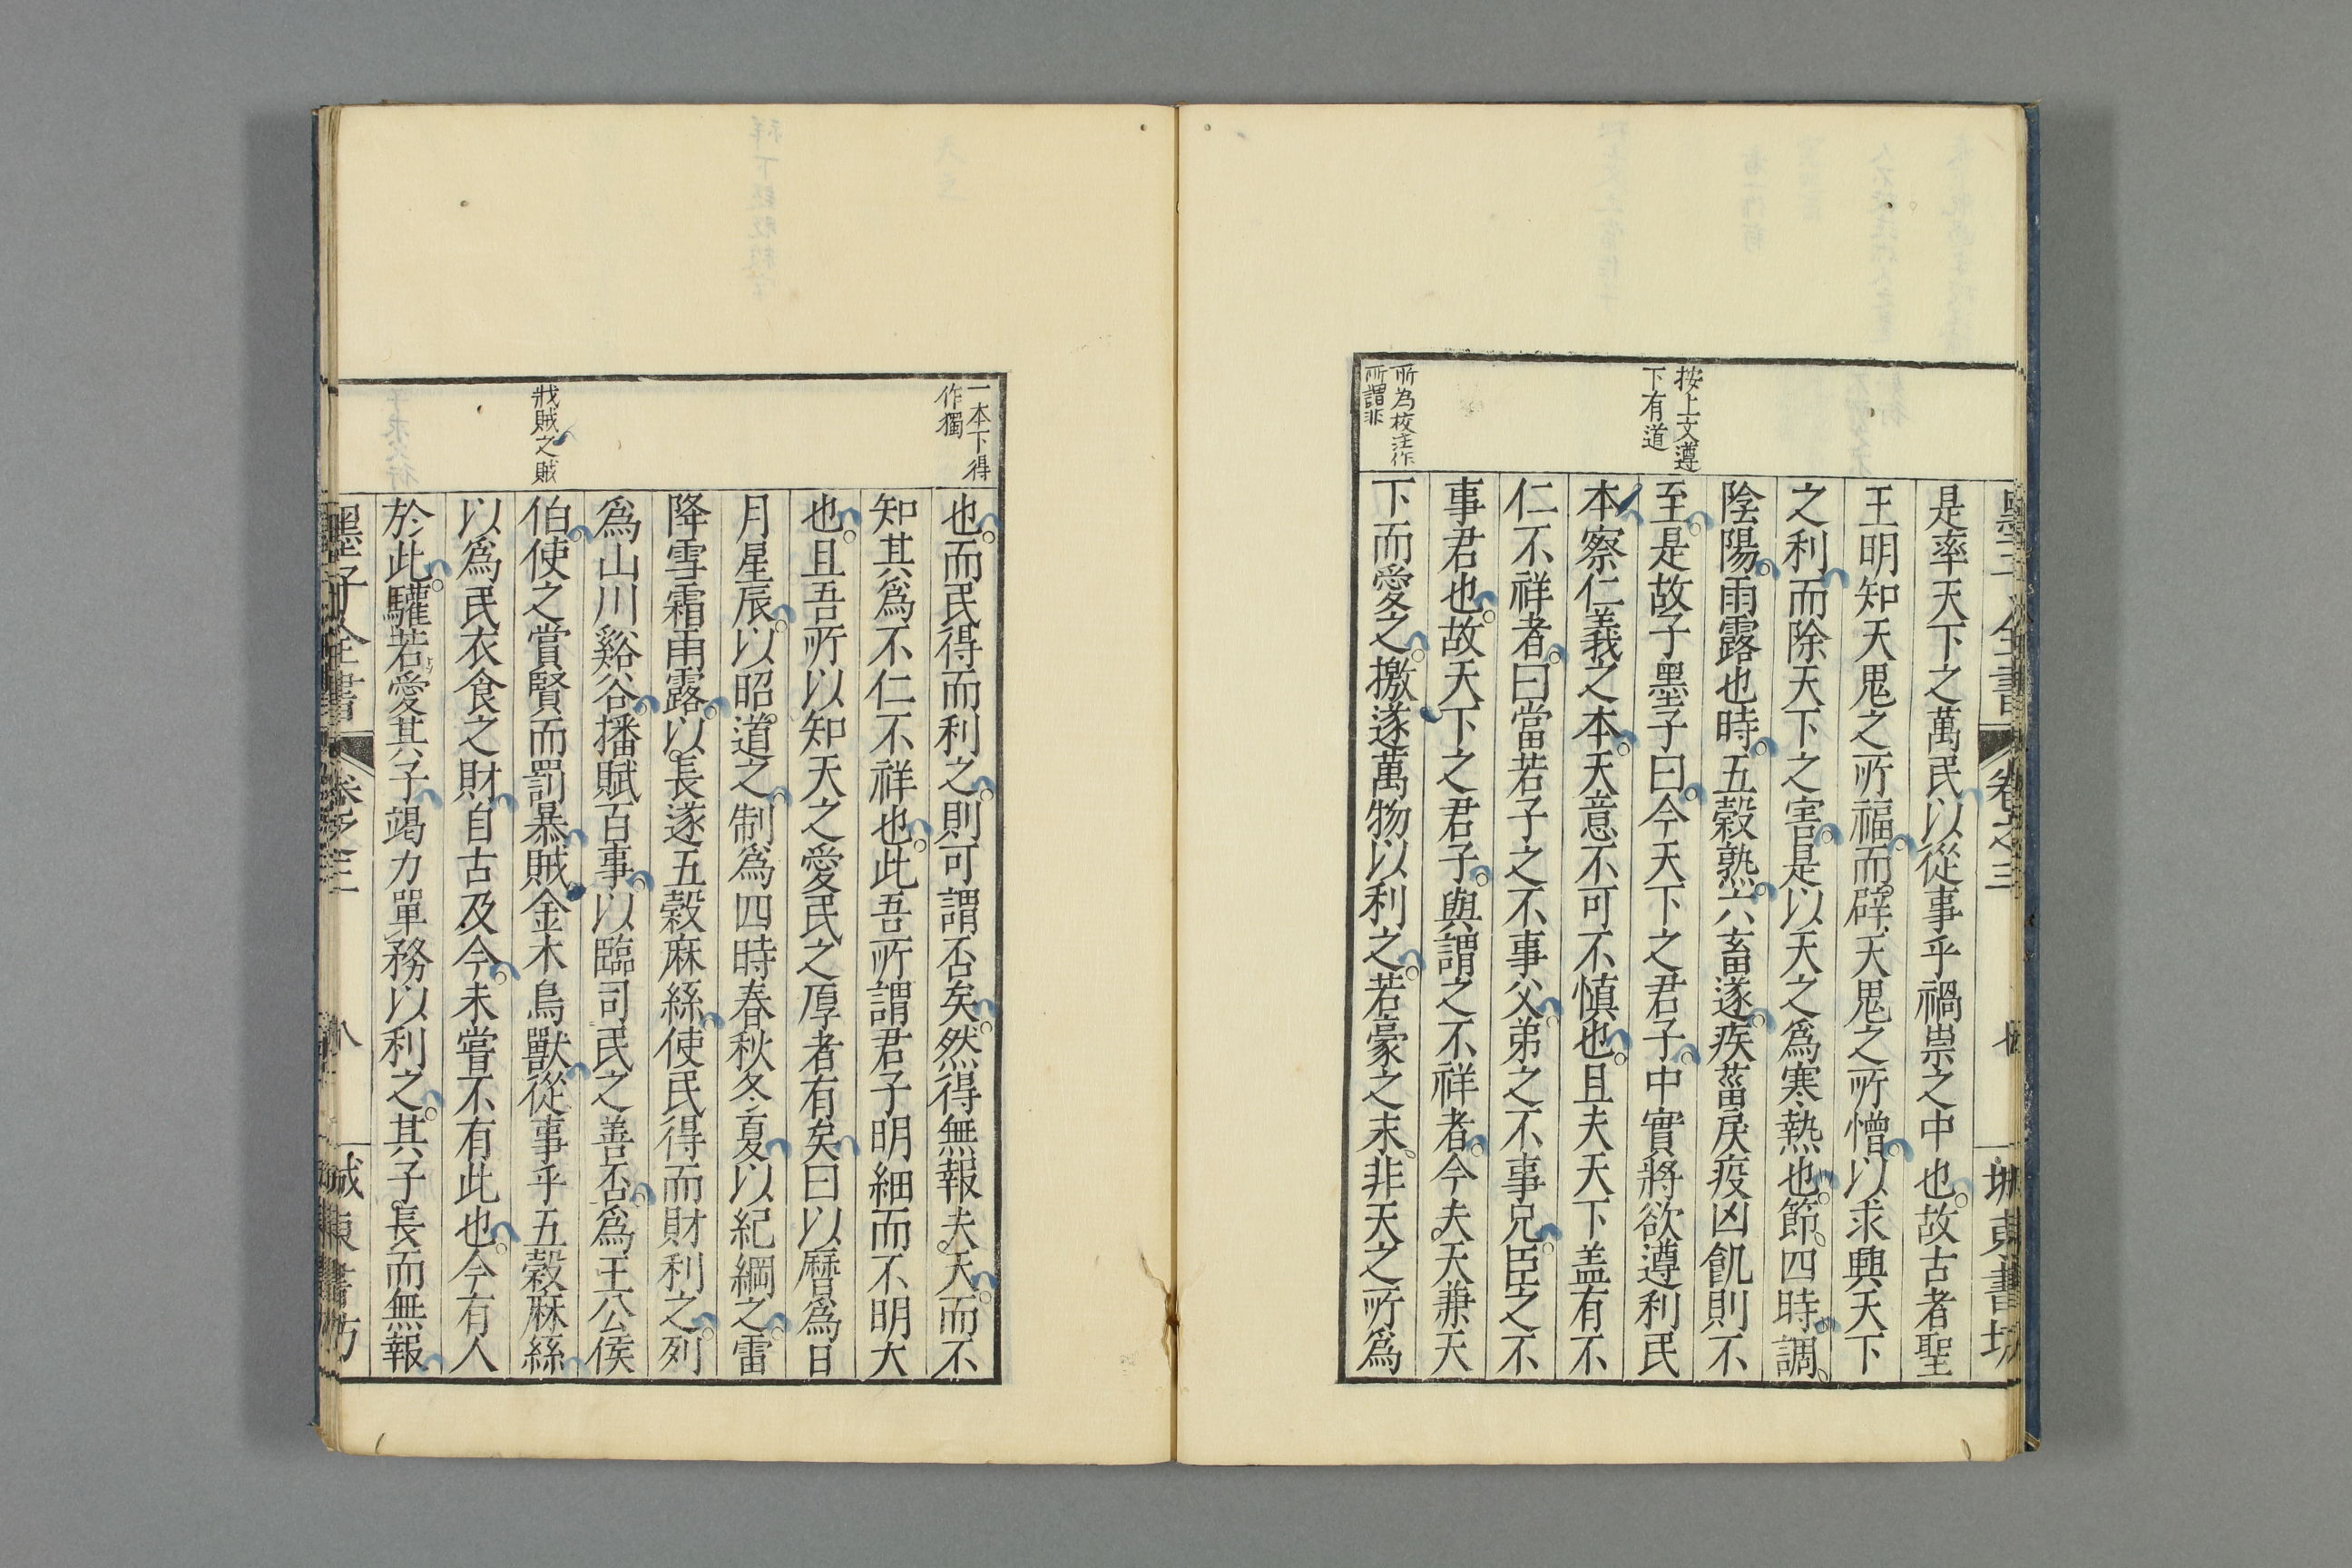 是率天下之萬民以從事乎禍祟之中也故古者聖
王明知天鬼之所福而辟天鬼之所憎以求興天下
之利而除天下之害是以天之爲寒熱也節四時調
陰陽雨露也時五穀熟六畜遂疾菑戾疫凶飢則不
按上文遵
下有道
至是故子墨子曰今天下之君子中實將欲遵利民
本察仁義之本天意不可不慎也且夫天下盖有不
仁不祥者曰當若子之不事父弟之不事兄臣之不
事君也故天下之君子與謂之不祥者今夫天兼天
所為校注作
所謂非
下而愛之撽遂萬物以利之若豪之末非天之所爲
一本下得
作獨
也而民得而利之則可謂否矣然得無報夫天而不
知其爲不仁不祥也此吾所謂君子明細而不明大
也且吾所以知天之愛民之厚者有矣曰以曆爲日
月星辰以昭道之制爲四時春秋冬夏以紀綱之雷
降雪霜雨露以長遂五穀麻絲使民得而財利之列
爲山川谿谷播賦百事以臨司民之善否爲王公侯
戕賊之賊
伯使之賞賢而罰暴賊金木鳥獸從事乎五穀麻絲
以爲民衣食之財自古及今未嘗不有此也今有人
於此驩若愛其子竭力單務以利之其子長而無報
墨子全書 卷之三 八 城東書坊